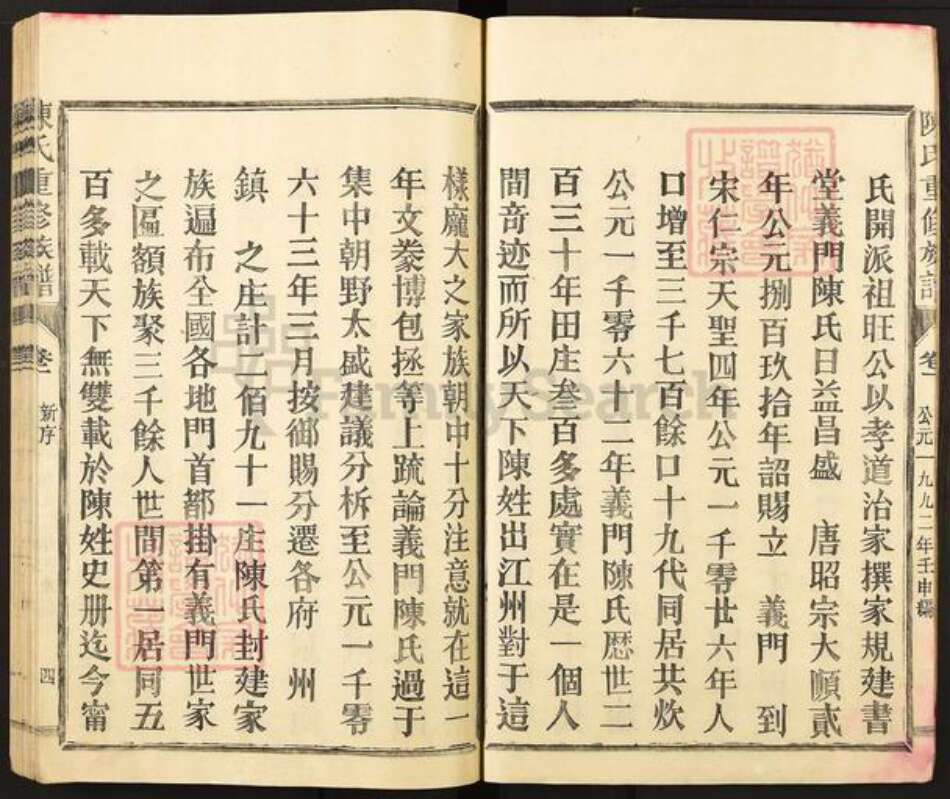 氏開派祖旺公以孝道治家撰家規建書
堂義門陳氏日益昌盛　唐昭宗大順貳
年公元捌百玖拾年詔賜立　義門　到
宋仁宗天聖四年公元一千零廿六年人
口增至三千七百餘口十九代同居共炊
公元一千零六十二年義門陳氏歷世二
百三十年田庄叁百多處實在是一個人
間奇迹而所以天下陳姓出江州對于這
樣龐大之家族朝中十分注意就在這一
年文彥博包拯等上疏論義門陳氏過于
集中朝野太盛建議分析至公元一千零
六十三年三月按御賜分遷各府　州
鎮　之庄計二佰九十一庄陳氏封建家
族遍布全國各地門首都掛有義門世家
之匾額族聚三千餘人世間第一居同五
百多載天下無雙載於陳姓史册迄今甯
陳氏重修族譜
卷一
公元一九九二年壬申編
陳氏重修族譜
卷一
新序
四
FamilySearch